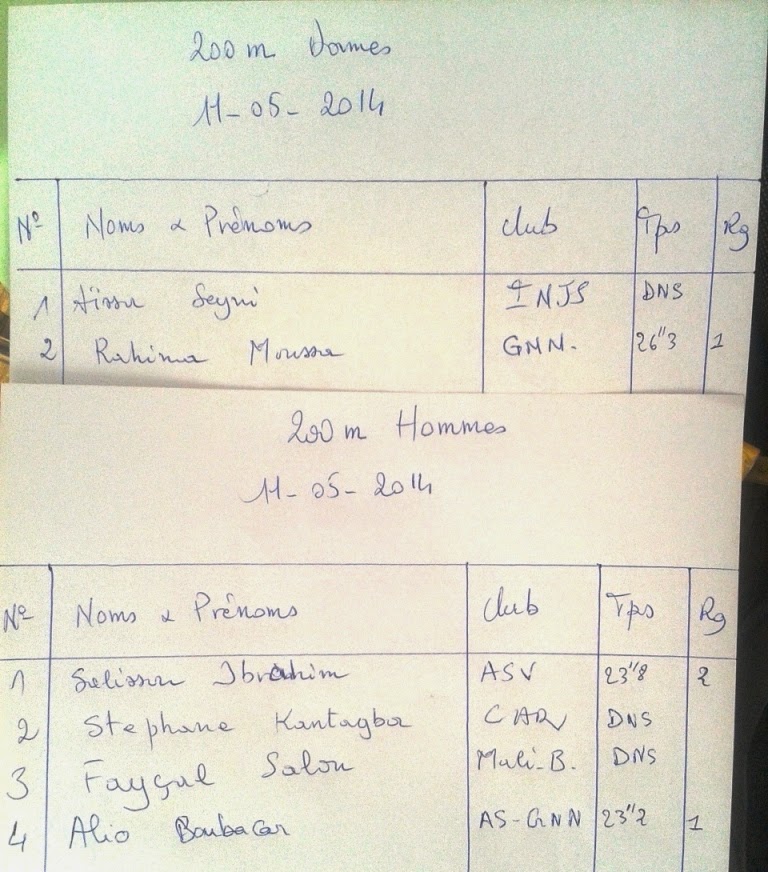 200 m Dames
11-05-2014
N° Noms & Prénoms Club Tps Rg
1 Aïssa Seyni INJS DNS
2 Rahima Moussa GNN. 26"3 1
200 m Hommes
11-05-2014
N° Noms & Prénoms Club Tps Rg
1 Salissou Ibrahim ASV 23"8 2
2 Stephane Kantagba DNS
3 Fayçal Salou Mali-B. DNS
4 Alio Boubacar AS-GNN 23"2 1